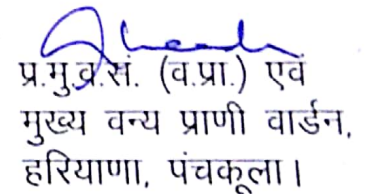 प्र.मु.व.सं. (व.प्रा.) एवं
मुख्य वन्य प्राणी वार्डन,
हरियाणा, पंचकूला।